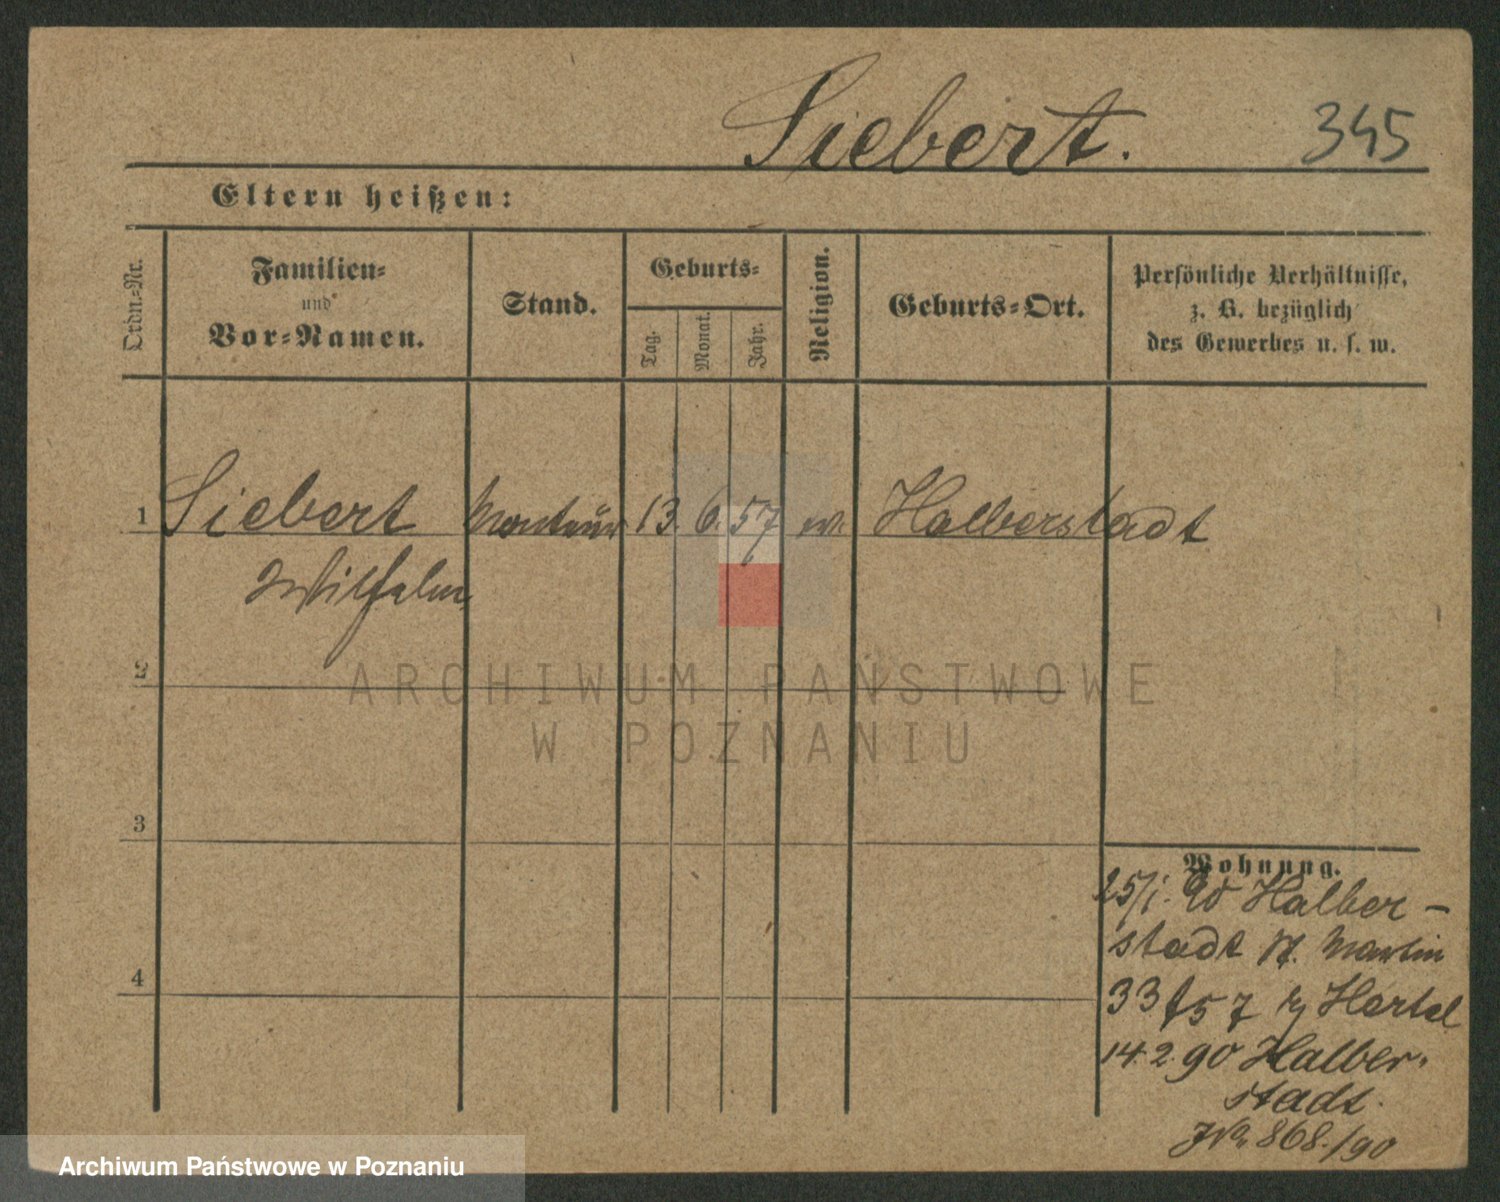 Siebert. 345
Eltern heißen:
Ordn.-Nr.
Familien-
und
Vor-Namen.
Stand.
Geburts-
Tag.
Monat.
Jahr.
Religion.
Geburts-Ort.
Persönliche Verhältnisse,
z. B. bezüglich
des Gewerbes u. s. w.
1 Siebert Monteur 13. 6. 57 ev. Halberstadt
Wilhelm
2
3
4
Wohnung.
25/1. 90 Halber-
stadt St. Martin
33 f 57 Hertel
14.2.90 Halber-
stadt.
868./90
ARCHIWUM PAŃSTWOWE
W POZNANIU
Archiwum Państwowe w Poznaniu